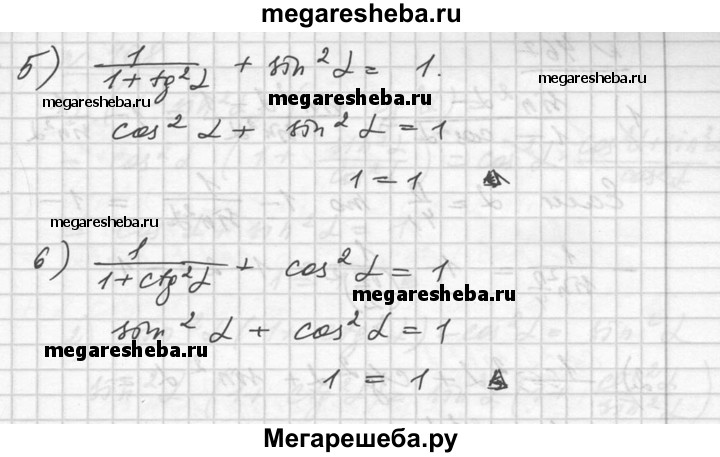 megaresheba.ru
5) 1/(1 + tg²α) + sin²α = 1.
megaresheba.ru
megaresheba.ru megaresheba.ru
cos²α + sin²α = 1
1 = 1
megaresheba.ru
6) 1/(1 + ctg²α) + cos²α = 1
megaresheba.ru
sin²α + cos²α = 1
megaresheba.ru
1 = 1
Мегарешеба.ру